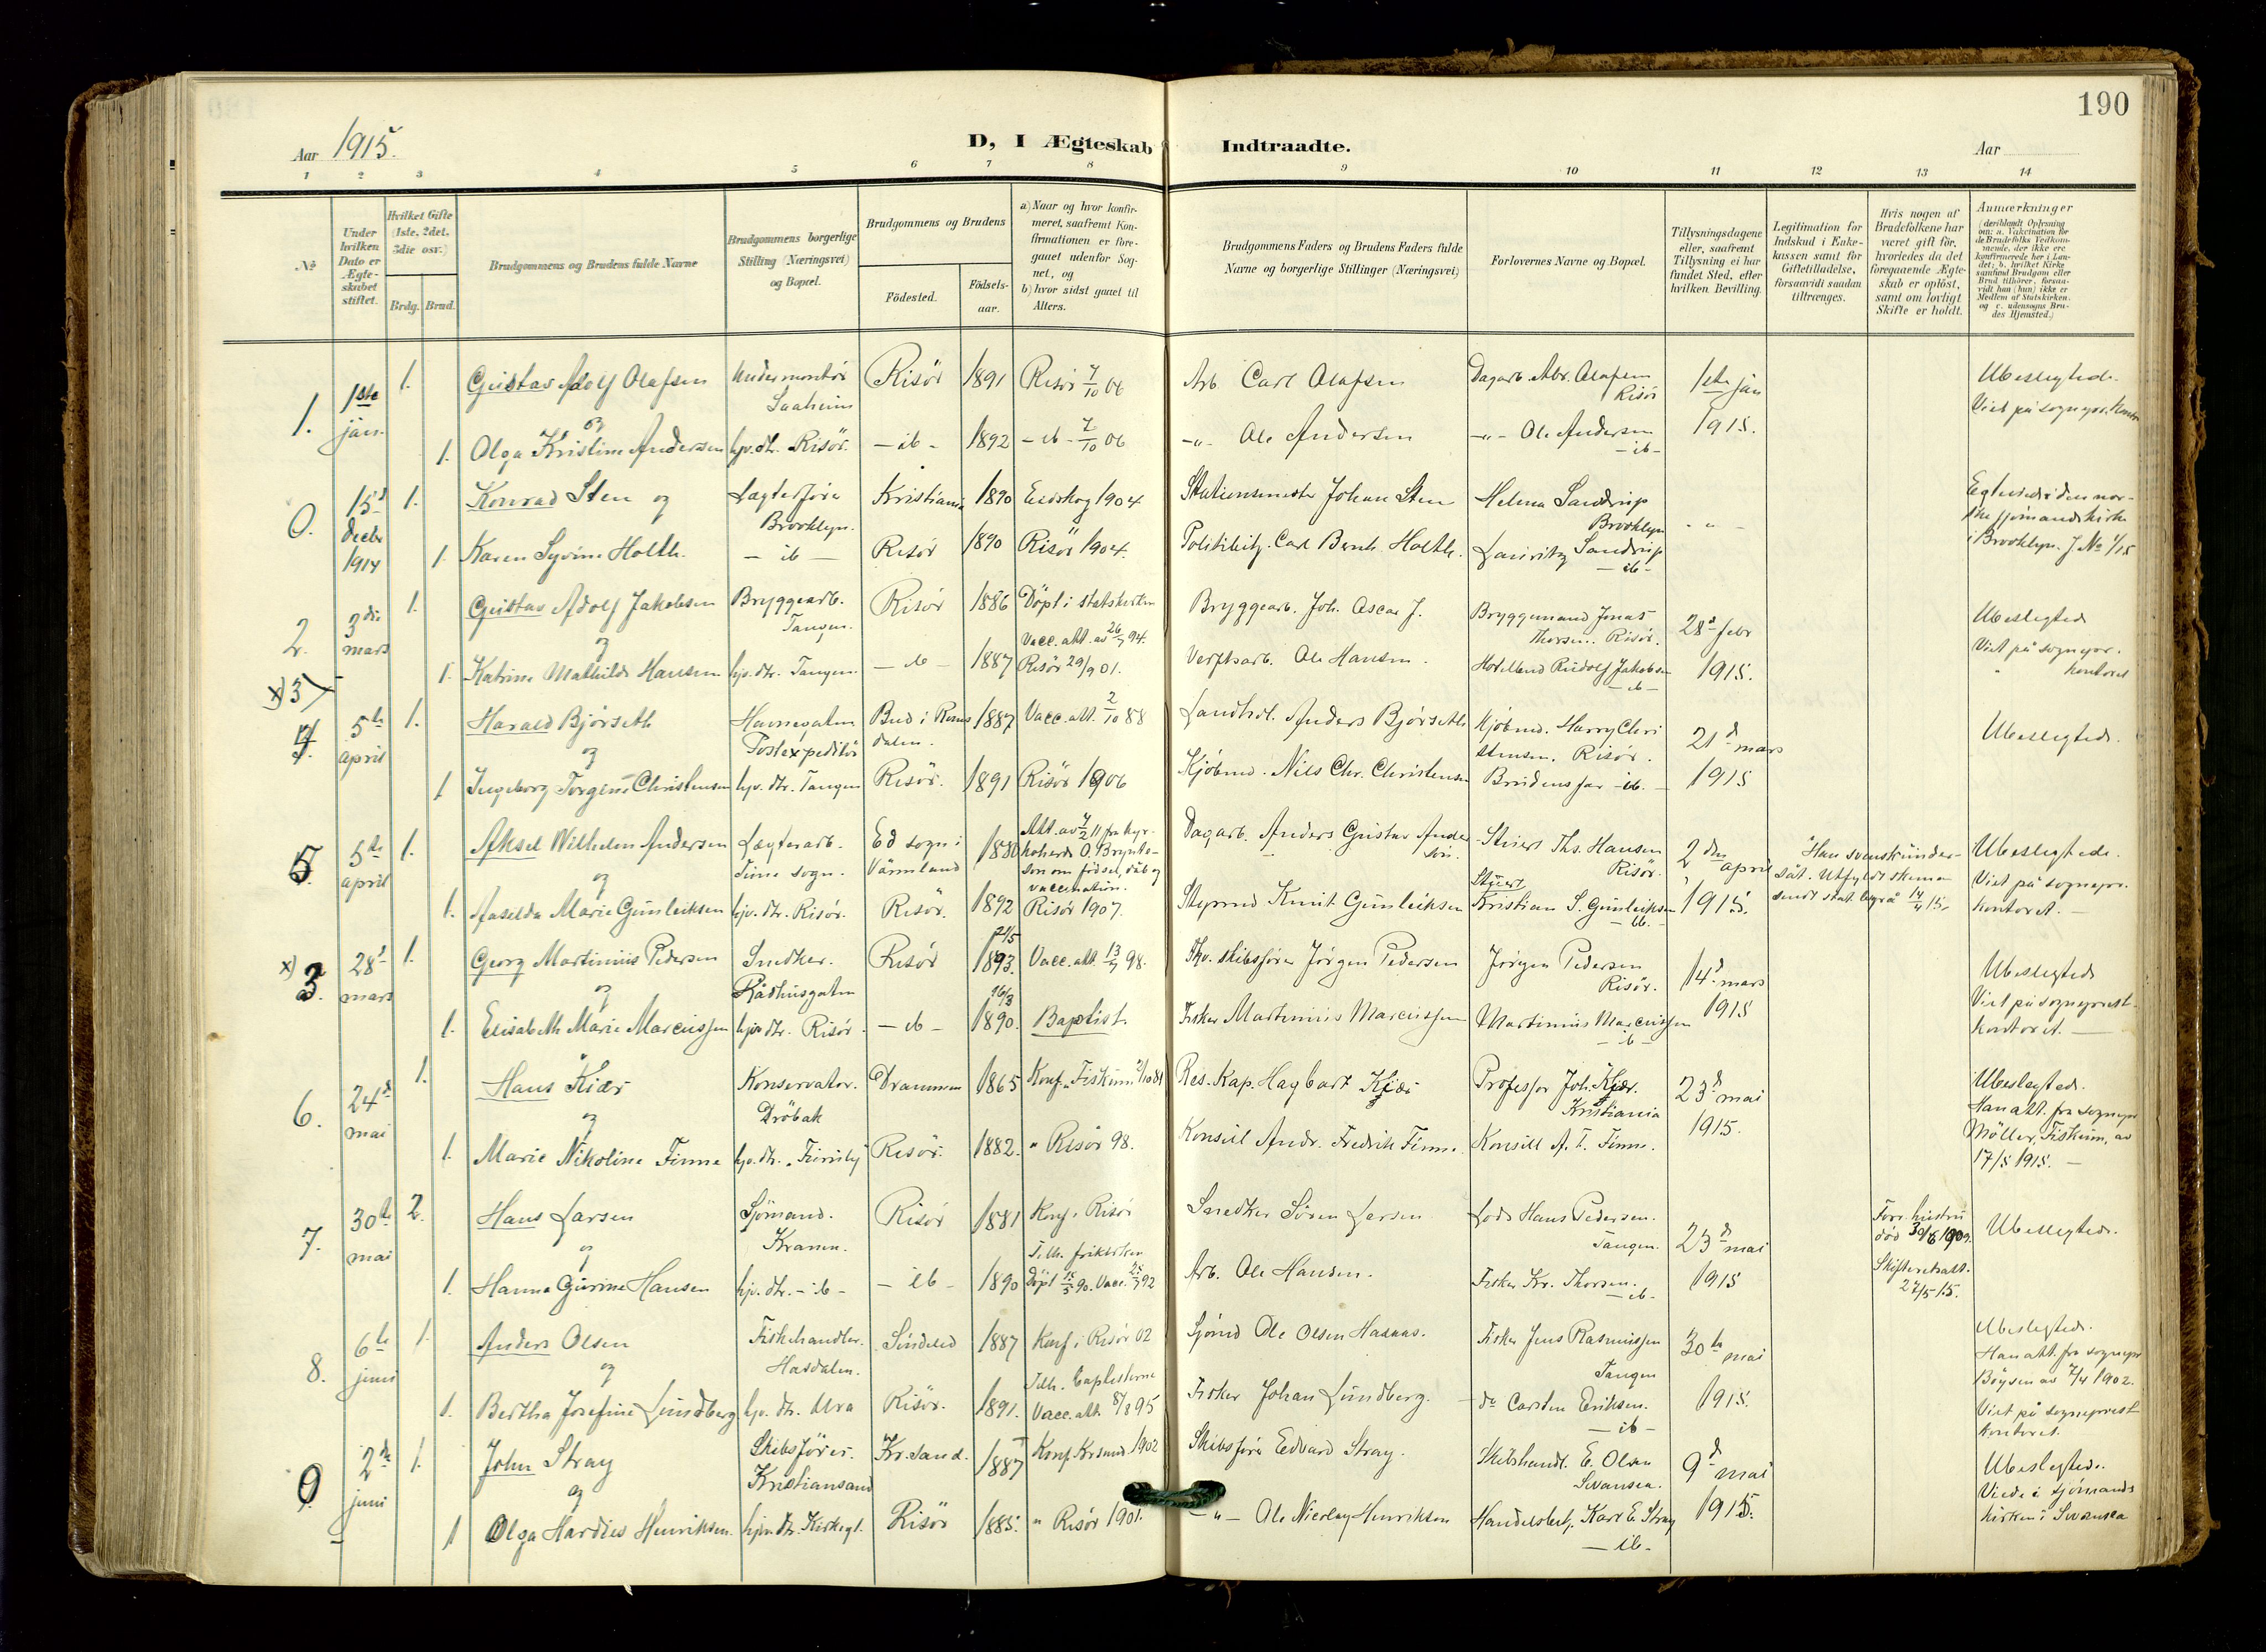 190
Aar 1915.
D, I Ægteskab Indtraadte.
Aar
1 2 3 4 5 6 7 8 9 10 11 12 13 14
№
Under hvilken Dato er Ægteskabet stiftet.
Hvilket Gifte (1ste, 2det, 3die osv.)
Brdg. Brud.
Brudgommens og Brudens fulde Navne
Brudgommens borgerlige Stilling (Næringsvei) og Bopæl.
Brudgommens og Brudens
Födested.
Födselsaar.
a) Naar og hvor konfirmeret, saafremt Konfirmationen er foregaaet udenfor Sognet, og
b) hvor sidst gaaet til Alters.
Brudgommens Faders og Brudens Faders fulde Navne og borgerlige Stillinger (Næringsvei)
Forlovernes Navne og Bopæl.
Tillysningsdagene eller, saafremt Tillysning ei har fundet Sted, efter hvilken Bevilling.
Legitimation for Indskud i Enkekassen samt for Giftetilladelse, forsaavidt saadan tiltrænges.
Hvis nogen af Brudefolkene har været gift för, hvorledes da det foregaaende Ægteskab er oplöst, samt om lovligt Skifte er holdt.
Anmærkninger
(deriblandt Oplysning om: a. Vakcination for de Brudefolks Vedkommende, der ikke ere konfirmerede her i Landet; b. hvilket Kirkesamfund Brudgom eller Brud tilhörer, forsaavidt han (hun) ikke er Medlem af Statskirken, og c. udensogns Brudes Hjemsted.)
1. 1ste jan. 1. Gustav Adolf Olafsen Undermontör Saaheim Risör 1891 Risör 7/10 06 Arb. Carl Olafsen Dagarb. Abr. Olafsen Risör 1ste jan Ubeslegtede.
og
1. Olga Kristine Andersen hjv. dtr. Risör. - ib - 1892 - ib - 7/10 06 -"- Ole Andersen -"- Ole Andersen - ib - 1915. Viet på sognepr. kontor
0. 15d decbr 1914 1. Konrad Sten og Lægterförer Brooklyn. Kristiania 1890 Eidskog 1904 Stationsmester Johan Sten Helma Sandrup Brooklyn - " -
1. Karen Syvine Holth. - ib - Risör 1890 Risör 1904. Politibetj. Carl Bernh. Holth. Lauritz Sandrup - ib -
Egteviet i den norske sjömandskirke i Brooklyn. J. No 1/15
2. 3die mars 1. Gustav Adolf Jakobsen Bryggearb. Tangen. Risör 1886 Döpt i statskirken Vacc. att. av 26/7 94. Bryggearb. Joh. Oscar J. Bryggemand Jonas Thorsen. Risör. 28d febr Ubeslegtede
og
1. Katrine Mathilde Hansen hjv. dtr. Tangen. - ib - 1887 Risör 29/9 01. Verftsarb. Ole Hansen. Rudolf Jakobsen - ib - 1915. Viet på sognepr. kontoret
x) 3
4. 5te april 1. Harald Bjørseth Havnegaten Postexpeditör Bud i Romsdalen. 1887 Vacc. att. 2/10 88 Landhdl. Anders Bjørseth Kjöbmd. Harry Christensen, Risör. 21d mars Ubeslegtede.
og
1 Ingeborg Torgine Christensen hjv. dtr. Tangen Risör. 1891 Risör 1906 Kjöbmd. Nils Chr. Christensen Brudens far - ib. - 1915
5. 5te april 1. Aksel Wilhelm Andersen Lægterarb. sogn. Ed sogn i Värmland 1880 Att. av 4/2 11 fra kyrkoherde O. Bryntesson om födsel, dåb og vaccination. Dagarb. Anders Gustav Andersson. Stuert Ths. Hansen Risör. 2den april Han svensk undersåt. Utfyldt skema sendt stat. byrå 14/4 15. Ubeslegtede. Viet på sognepr. kontoret. -
og
1. Aasilda Marie Gunleiksen hjv. dtr. Risör. Risör. 1892 Risör 1907. Styrmd Knut Gunleiksen Stuert Kristian S. Gunleiksen - ib. - 1915.
x) 3. 28d mars 1. Georg Martinius Pedersen Snedker. Rådhusgaten Risör 21/5 1893. Vacc. att. 13/7 98. Fhv. skibsförer Jörgen Pedersen Jörgen Pedersen Risör. 14d mars Ubeslegtede
og
1. Elisabeth Marie Marcussen hjv dtr. Risör - ib - 16/3 1890. Baptist. Fisker Martinius Marcussen Martinius Marcussen - ib - 1915 Viet på sogneprestkontoret. -
6. 24d mai 1. Hans Kiær Konservator. Dröbak Drammen 1865 Konf. Fiskum Res. Kap. Hagbart Kiær Professor Joh. Kjær. Kristiania 23d mai Ubeslegtede.
og
1. Marie Nikoline Finne hjv. dtr. Risör. 1882. " Risör 98. Konsul Andr. Fredrik Finne. Konsul A. F. Finne. 1915. Han att. fra sognepr Möller, Fiskum, av 17/5 1915. -
7. 30te mai 2. Hans Larsen Sjömand. Kranen. Risör 1881 Konf. i Risör Snedker Sören Larsen Lods Hans Pedersen. Tangen. 23d mai Forr. hustru död 30/6 1909. Ubeslegtede.
og
1. Hanna Gurine Hansen hjv. dtr. - ib - - ib - 1890 Tilh. frikirken Döpt 15/5 90. Vacc. 25/7 92 Arb. Ole Hansen. Fisker Kr. Thorsen. - ib - 1915 Skifteretsatt. 27/5 15.
8. 6te juni 1. Anders Olsen Fiskehandler. Hasdalen. Söndeled 1887 Konf. i Risör 02 Sjömd Ole Olsen Hasaas. Fisker Jens Rasmussen Tangen 30te mai Ubeslegtede.
og
1. Bertha Josefine Lundberg hjv. dtr. Ura Risör. 1891. Tilh. baptisterne Vacc. att. 8/8 95 Fisker Johan Lundberg. do Carsten Eriksen. - ib - 1915. Han att. fra sognepr Böysen av 7/4 1902. Viet på sogneprestkontoret.
9. 2den juni 1. John Stray Skibsförer. Kristiansand Kr.sand. 1887 Konf. Krsand. 1902 Skibsförer Edvard Stray. Skibshandl. E. Olsen Swansea. 9d mai Ubeslegtede.
og
1 Olga Hardies Henriksen. hjv. dtr. Kirkegt. Risör 1885. " Risör 1901. - " - Ole Nicolay Henriksen Handelsbetj. Karl E. Stray - ib - 1915. Viede i sjömandskirken i Swansea